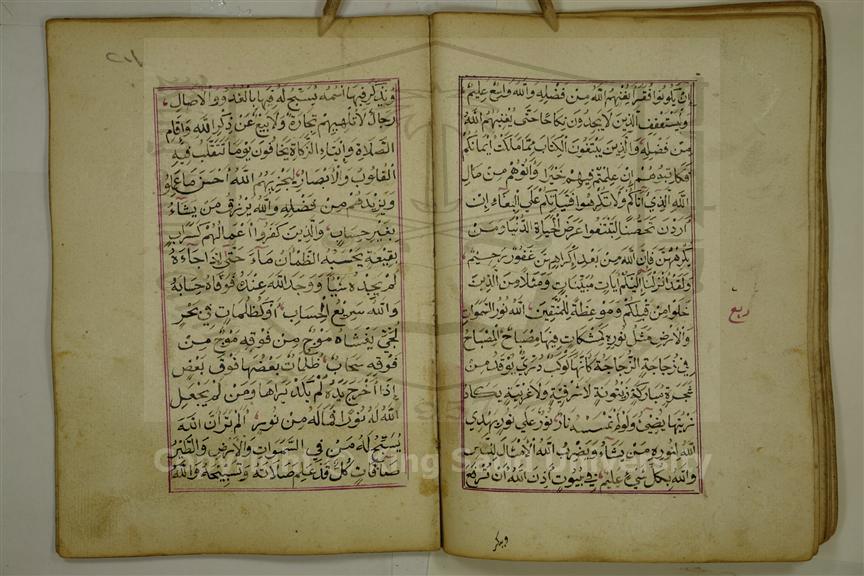 ان يكونوا فقراء يغنيهم الله من فضله والله واسع عليم
وليستعفف الذين لا يجدون نكاحا حتى يغنيهم الله
من فضله والذين يبتغون الكتاب مما ملكت ايمانكم
فكاتبوهم ان علمتم فيهم خيرا واتوهم من مال
الله الذي اتاكم ولا تكرهوا فتياتكم على البغاء ان
اردن تحصنا لتبتغوا عرض الحياة الدنيا ومن
يكرههن فان الله من بعد اكراههن غفور رحيم
ولقد انزلنا اليكم ايات مبينات ومثلا من الذين
خلوا من قبلكم وموعظة للمتقين الله نور السموات
ربع
والارض مثل نوره كمشكات فيها مصباح المصباح
في زجاجة الزجاجة كانها كوكب دري يوقد من
شجرة مباركة زيتونة لا شرقية ولا غربية يكاد
زيتها يضيئ ولو لم تمسسه نار نور على نور يهدي
الله لنوره من يشاء ويضرب الله الامثال للناس
والله بكل شيئ عليم في بيوت اذن الله ان ترفع
ويذكر
ويذكر فيها اسمه يسبح له فيها بالغدو والاصال
رجال لا تلهيهم تجارة ولا بيع عن ذكر الله واقام
الصلاة وايتاء الزكاة يخافون يوما تتقلب فيه
القلوب والابصار ليجزيهم الله احسن ما عملوا
ويزيدهم من فضله والله يرزق من يشاء
بغير حساب والذين كفروا اعمالهم كسراب
بقيعة يحسبه الظمان ماء حتى اذا جاءه
لم يجده شيا ووجد الله عنده فوفاه حسابه
والله سريع الحساب او كظلمات في بحر
لجي يغشاه موج من فوقه موج من
فوقه سحاب ظلمات بعضها فوق بعض
اذا اخرج يده لم يكد يراها ومن لم يجعل
الله له نورا فما له من نور الم تر ان الله
يسبح له من في السموات والارض والطير
صافات كل قد علم صلاته وتسبيحه والله